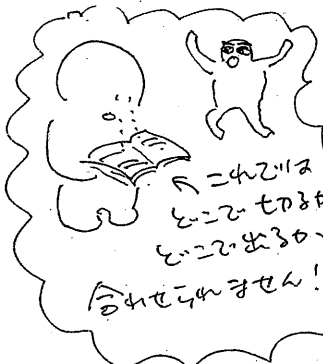 これでは
どこで切るか
どこで出るか、
合わせられません！